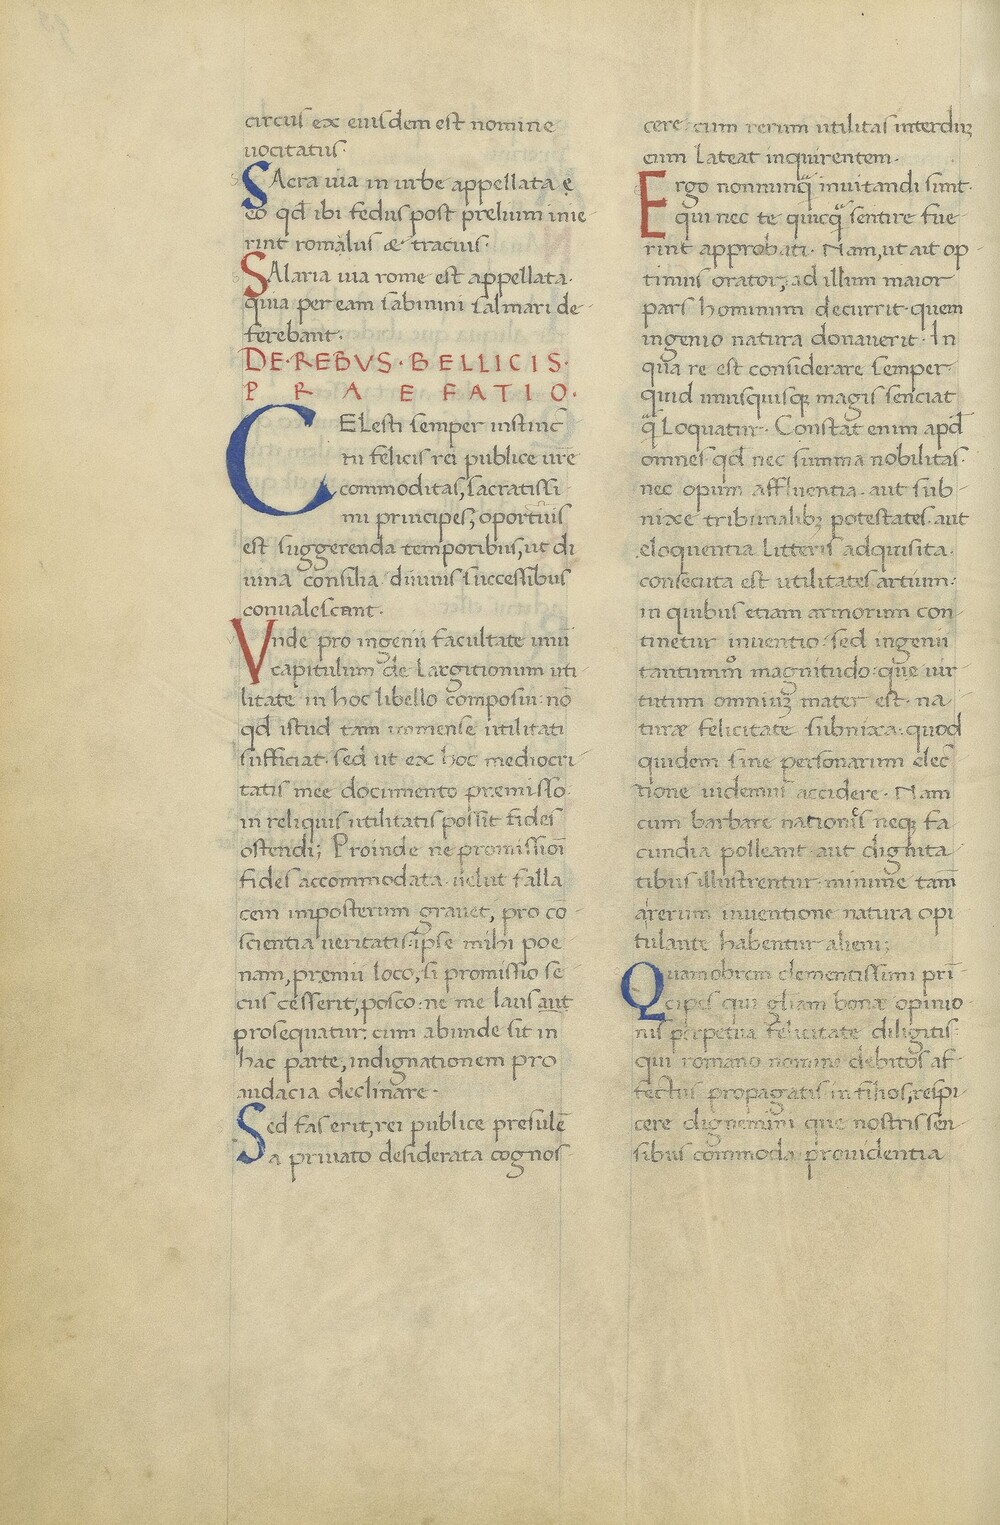 circus ex eiusdem est nomine
uocitatus·
SAcra uia in urbe appellata ẹ
eo qđ ibi fedus post prelium inie
rint romalus & tracius·
SAlaria uia rome est appellata·
quia per eam sabinini sal mari de
ferebant·
DE·REBVS·BELLICIS·
PRAEFATIO·
CELesti semper instinc
tu felicis rei publice ure
commoditas, sacratissi
mi principes, oportuis
est suggerenda temporibus, ut di
uina consilia diuinis successibus
conualescant·
Vnde pro ingenii facultate unū
capitulum de Largitionum uti
litate in hoc libello composui· nō
qđ istud tam immense utilitati
sufficiat· sed ut ex hoc mediocri
tatis mee documento premisso
in reliquis utilitatis possit fides
ostendi; Proinde ne promissioī
fides accommodata uelut falla
cem imposterum grauet, pro cō
scientia ueritatis· ipse mihi poe
nam, premii loco, si promissio se
cus cesserit, posco· ne me laus aut
prosequatur· cum abunde sit in
hac parte, indignationem pro
audacia declinare·
Sed fas erit, rei publice presulē
a priuato desiderata cognos
cere· cum rerum utilitas interdūȝ
eum Lateat inquirentem·
Ergo nonnunq̄ inuitandi sunt·
qui nec te quicq̄ sentire fue
rint approbati· Nam, ut ait op
timus orator, ad illum maior
pars hominum decurrit· quem
ingenio natura donauerit· In
qua re est considerare semper
quid unusquisq; magis senciat
q̄ Loquatur· Constat enim apđ
omnes· qđ nec summa nobilitas·
nec opum affluentia· aut sub
nixe tribunalib; potestates· aut
eloquentia Litteris adquisita·
consecuta est utilitates artium·
in quibus etiam armorum con
tinetur inuentio· sed ingenii
tantummº magnitudo· que uir
tutum omniuȝ mater est· na
turæ felicitate subnixa· quod
quidem sine personarum elec
tione uidemus accidere· Nam
cum barbare nationes neq; fa
cundia polleant· aut dignita
tibus illustrentur· minime tam̄
a rerum inuentione natura opi
tulante habentur alieni;
Quamobrem clementissimi prī
cipes qui gliam bonæ opinio
nis perpetua felicitate diligitis·
qui romano nomine debitos af
fectus propagatis in filios, respi
cere dignemini que nostris sen
sibus commoda prouidentia